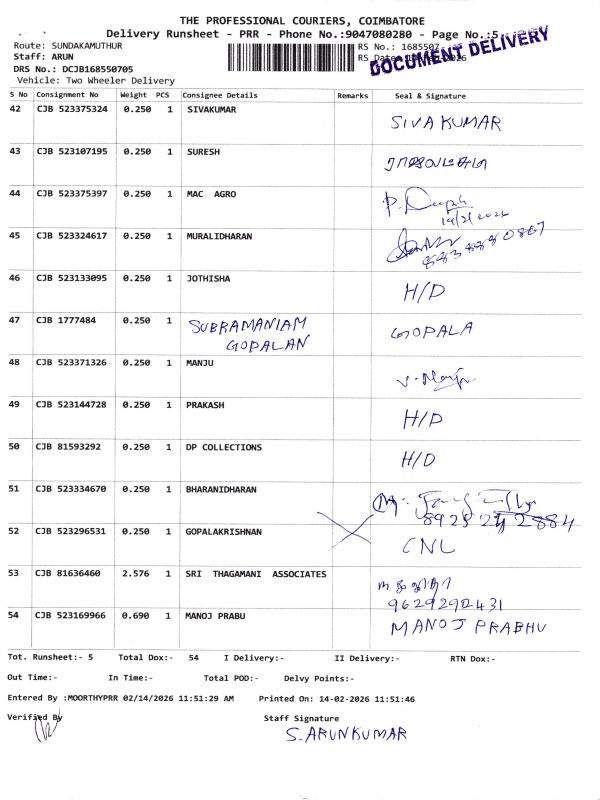 THE PROFESSIONAL COURIERS, COIMBATORE
Delivery Runsheet - PRR - Phone No.:9047080280 - Page No.:5
Route: SUNDAKAMUTHUR
RS No.: 1685507
DOCUMENT DELIVERY
Staff: ARUN
RS Date
DRS No.: DCJB168550705
Vehicle: Two Wheeler Delivery
S No Consignment No Weight PCS Consignee Details Remarks Seal & Signature
42 CJB 523375324 0.250 1 SIVAKUMAR SIVA KUMAR
43 CJB 523107195 0.250 1 SURESH
44 CJB 523375397 0.250 1 MAC AGRO P. Deepa
14/2/2026
45 CJB 523324617 0.250 1 MURALIDHARAN
46 CJB 523133095 0.250 1 JOTHISHA H/D
47 CJB 1777484 0.250 1 SUBRAMANIAM GOPALA
GOPALAN
48 CJB 523371326 0.250 1 MANJU
49 CJB 523144728 0.250 1 PRAKASH H/D
50 CJB 81593292 0.250 1 DP COLLECTIONS H/D
51 CJB 523334670 0.250 1 BHARANIDHARAN
52 CJB 523296531 0.250 1 GOPALAKRISHNAN CNL
53 CJB 81636460 2.576 1 SRI THAGAMANI ASSOCIATES
9629292431
54 CJB 523169966 0.690 1 MANOJ PRABU MANOJ PRABHU
Tot. Runsheet:- 5 Total Dox:- 54 I Delivery:- II Delivery:- RTN Dox:-
Out Time:- In Time:- Total POD:- Delvy Points:-
Entered By :MOORTHYPRR 02/14/2026 11:51:29 AM Printed On: 14-02-2026 11:51:46
Verified By Staff Signature
S. ARUNKUMAR